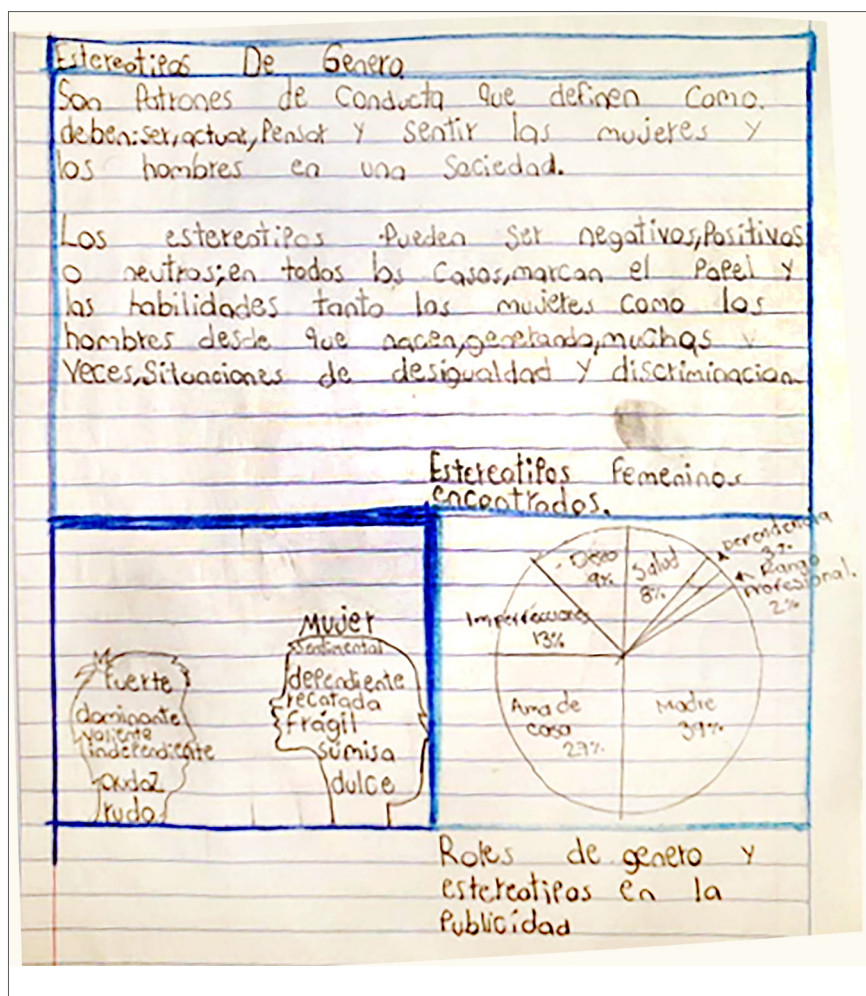 Estereotipos De Genero
Son Patrones de Conducta que definen Como.
deben:ser,actuar,Pensar y sentir las mujeres y
los hombres en una Sociedad.
Los estereotipos Pueden Ser negativos,Positivos
o neutros;en todos los Casos,marcan el Papel y
las habilidades tanto las mujeres como los
hombres desde que nacen,generando,muchas
Veces,Situaciones de desigualdad y discriminacion
Estereotipos femeninos
encontrados.
fuerte
dominante
valiente
independiente
audaz
rudo
Mujer
Sentimental
dependiente
recatada
frágil
sumisa
dulce
Deseo
9%
Salud
8%
Dependencia
3%
Rango
Profesional.
2%
Imperfecciones
13%
Ama de
casa
27%
Madre
39%
Roles de genero y
estereotipos en la
Publicidad